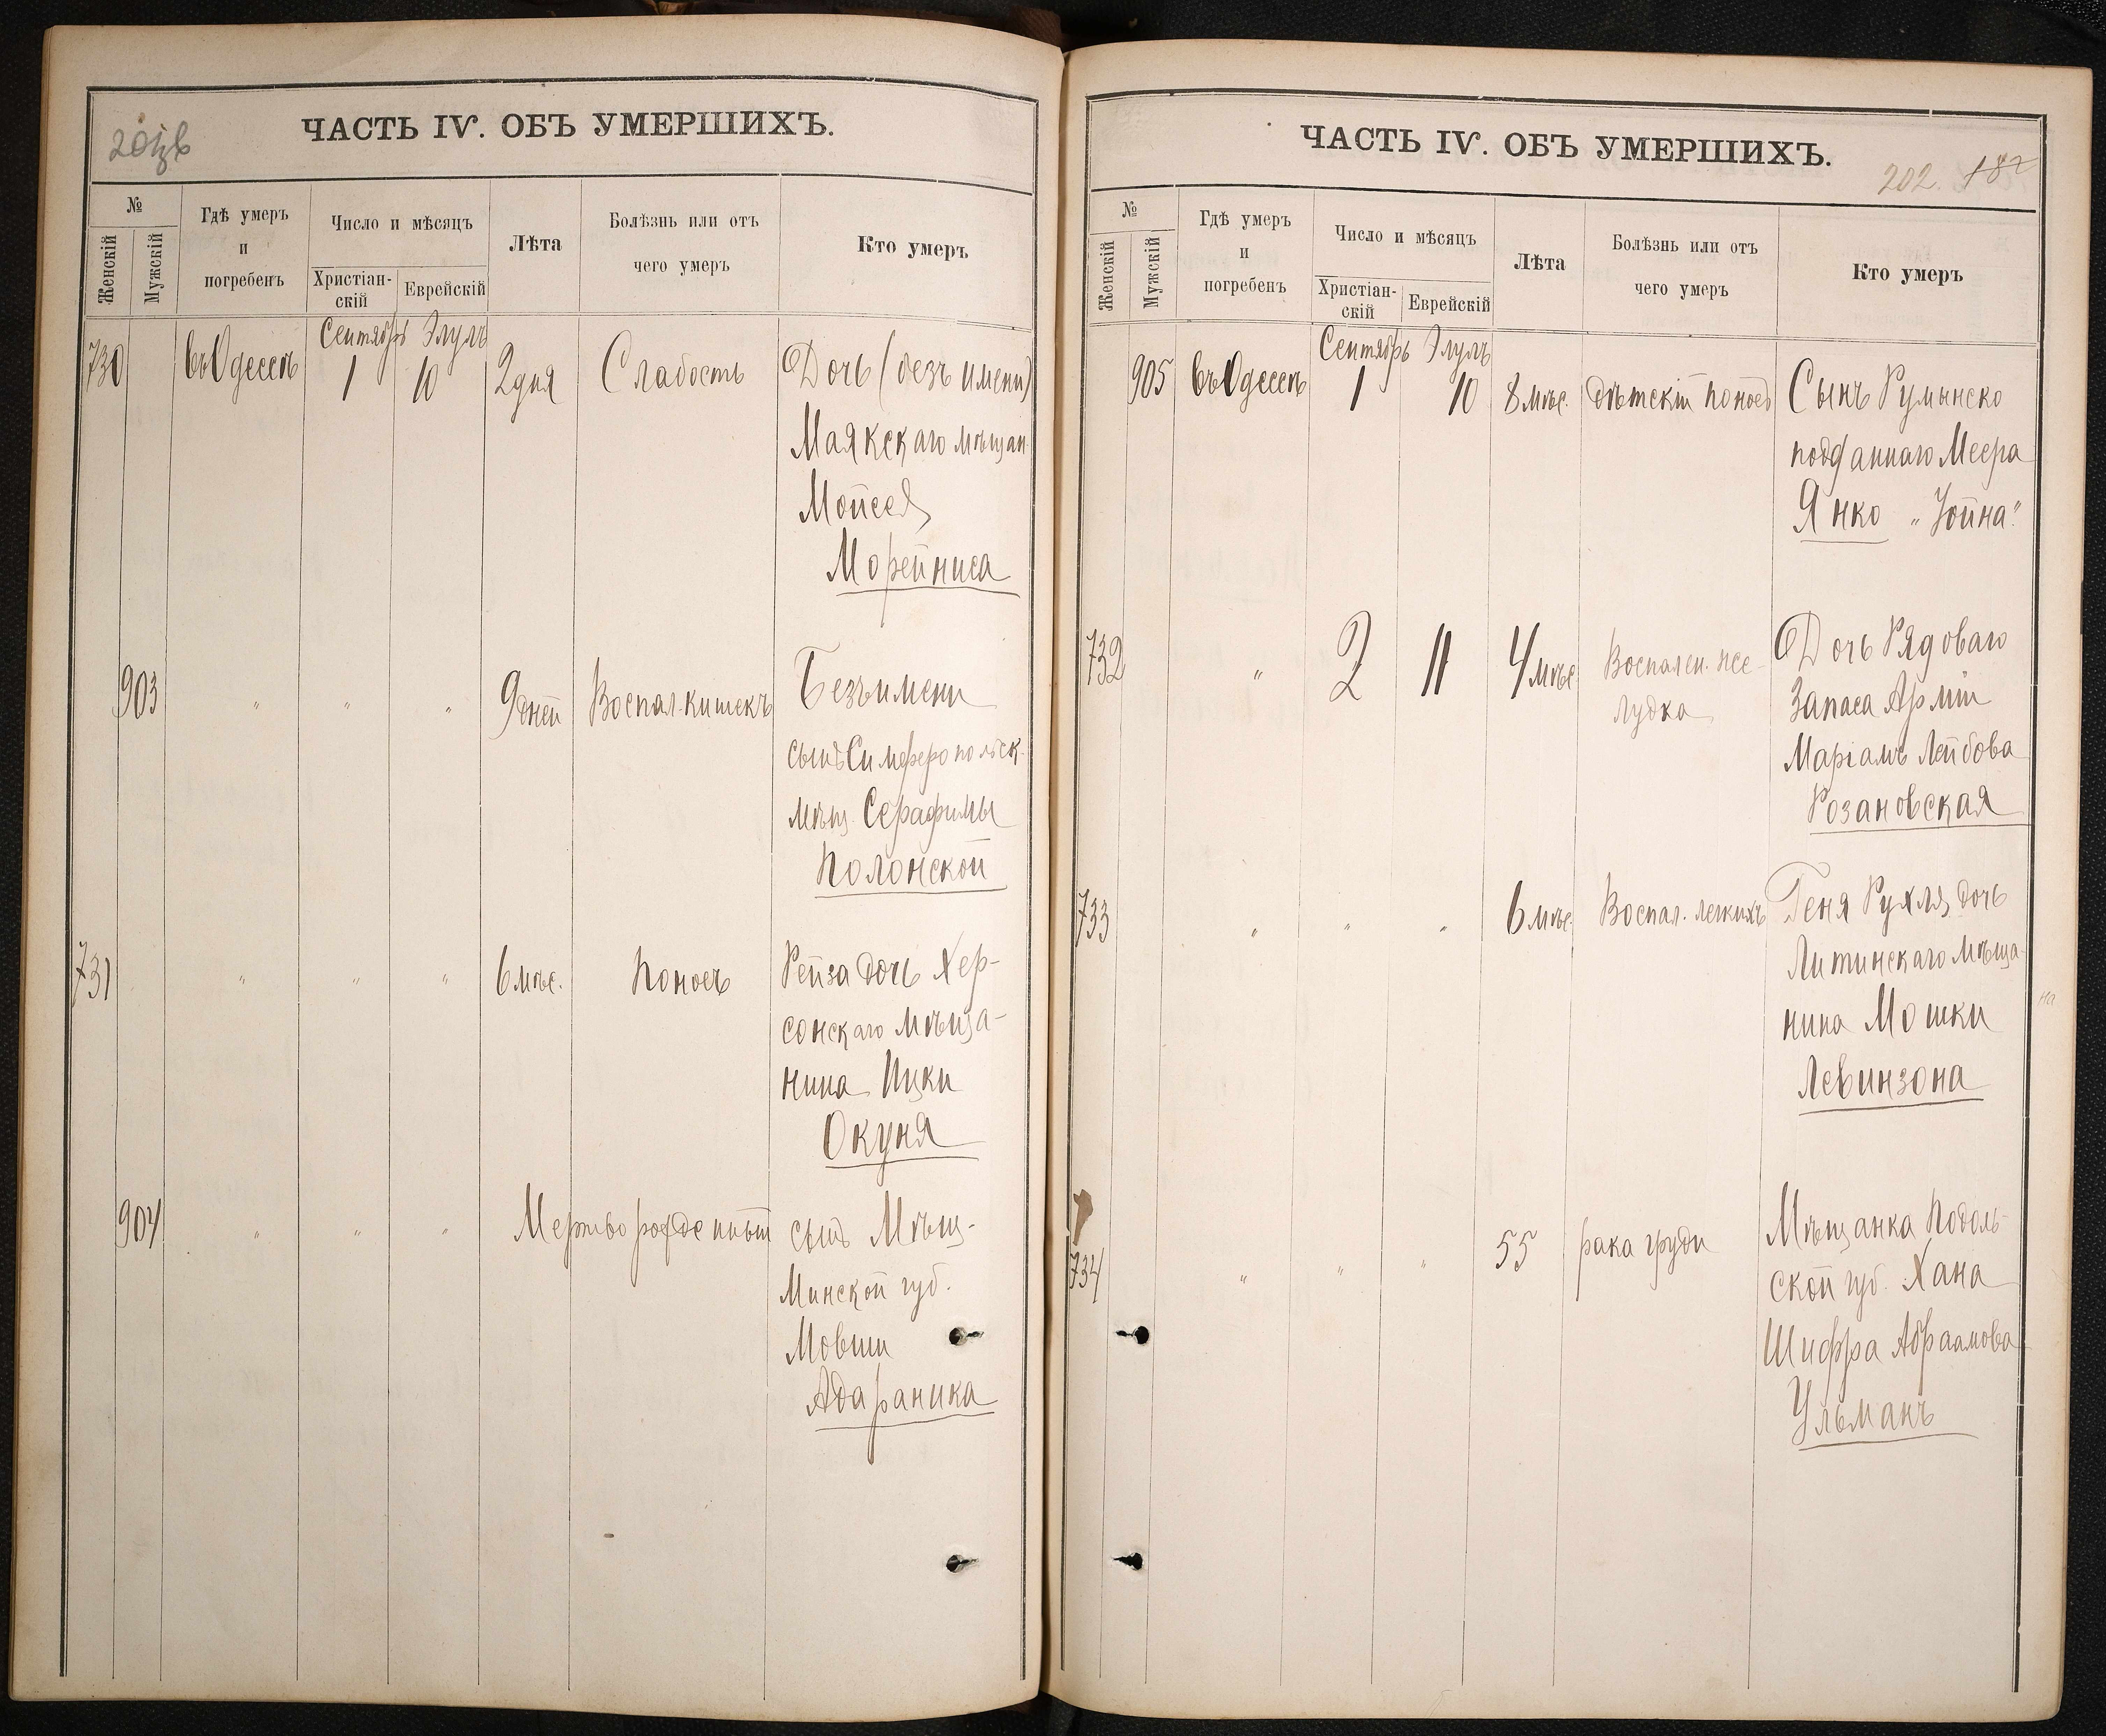 ЧАСТЬ IV. ОБЪ УМЕРШИХЪ.
№
Женскій
Мужскій
Гдѣ умеръ
и
погребенъ
Число и мѣсяцъ
Христіан-
скій
Еврейскій
Лѣта
Болѣзнь или отъ
чего умеръ
Кто умеръ
Сентябрь Элулъ
730 въ Одессѣ 1 10 2 дня Слабость Дочь (безъ имени)
Маякскаго мѣщан.
Мойсея
Морейниса
903 " " " 9 дней Воспал. кишекъ Безъ имени
сынъ Симферопольск.
мѣщ. Серафимы
Полонской
731 " " " 6 мѣс. Поносъ Рейза дочь Хер-
сонскаго мѣща-
нина Ицки
Окуня
904 " " " Мертворожденный сынъ Мѣщ.
Минской губ.
Мовши
Адараника
ЧАСТЬ IV. ОБЪ УМЕРШИХЪ.
202. 182
№
Женскій
Мужскій
Гдѣ умеръ
и
погребенъ
Число и мѣсяцъ
Христіан-
скій
Еврейскій
Лѣта
Болѣзнь или отъ
чего умеръ
Кто умеръ
Сентябрь Элулъ
905 въ Одессѣ 1 10 8 мѣс. дѣтскій поносъ Сынъ Румынско
подданнаго Меера
Янко "Іойна"
732 " 2 11 4 мѣс. Воспален. же-
лудка
Дочь Рядоваго
Запаса Арміи
Маріамъ Лейбова
Розановская
733 " " " 6 мѣс. Воспал. легкихъ Геня Рухля, дочь
Литинскаго мѣща-
нина Мошки
Левинзона
734 " " " 55 рака груди Мѣщанка Подоль-
ской губ. Хана
Шифра Абраамова
Ульманъ